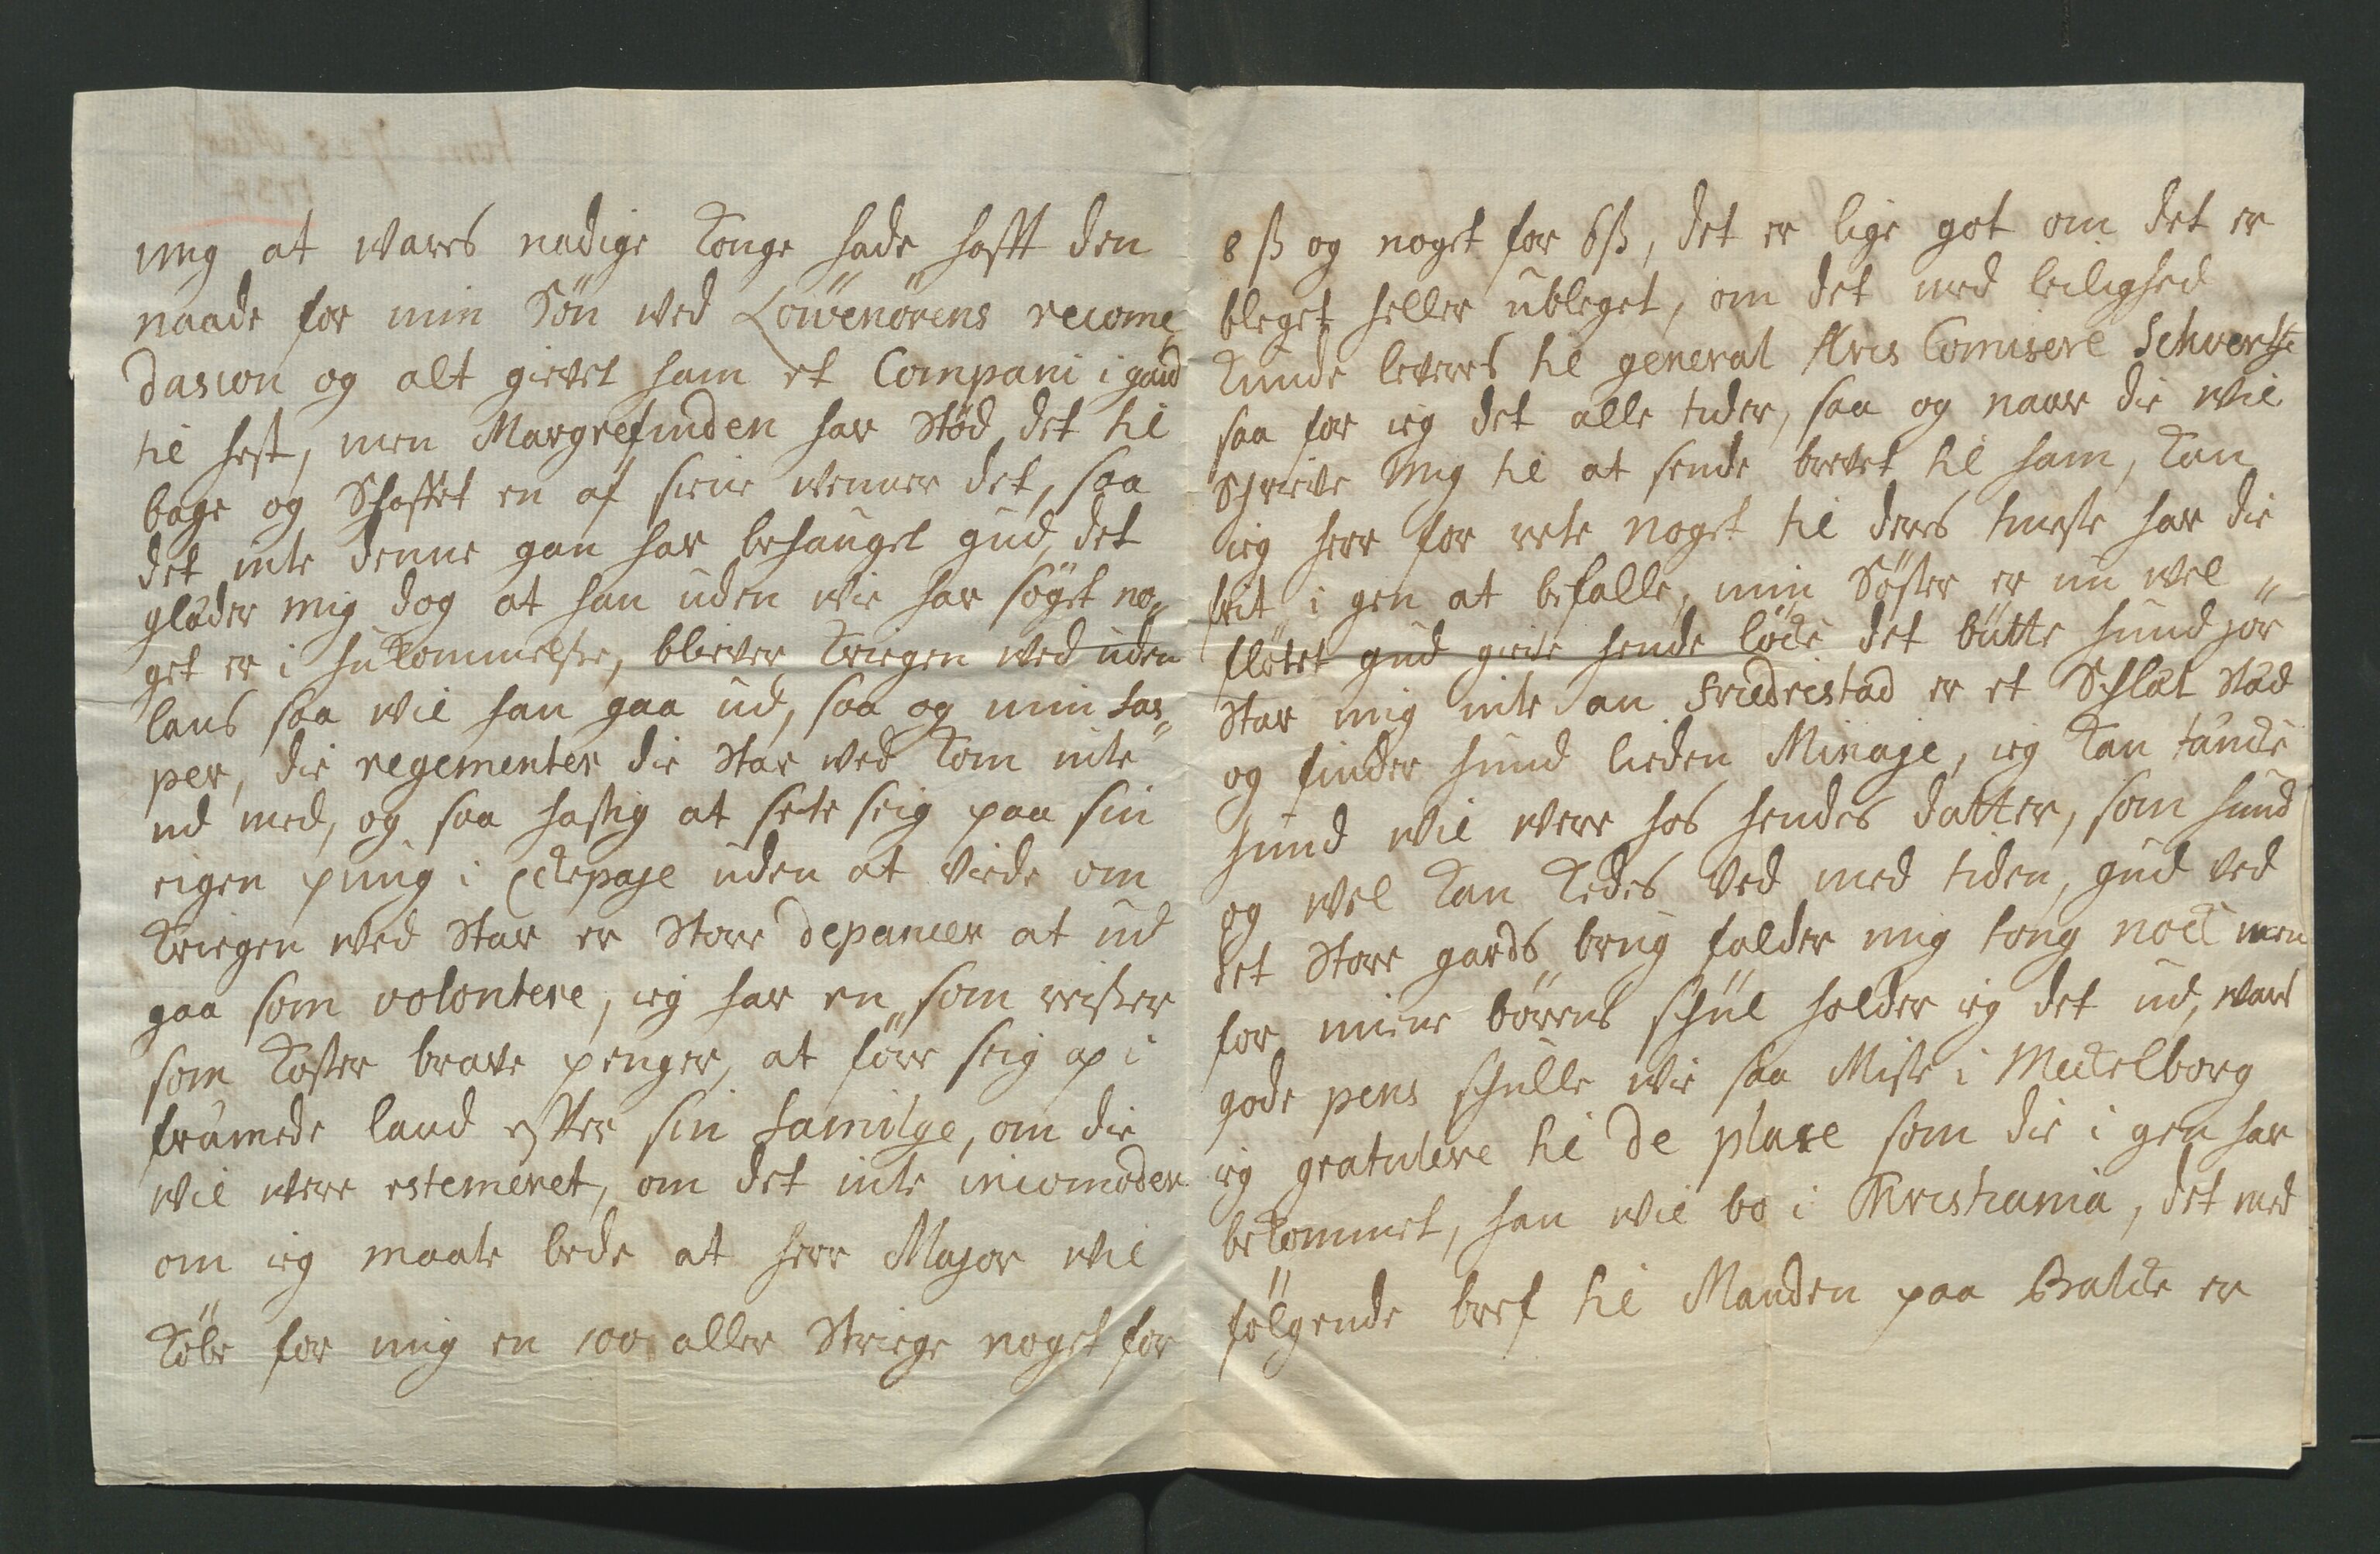 mig at wares nadige Konge hade hafft den
naade for min Sön wed Löuvenörens recome„
dasion og alt gievet ham et Compani i gard
til hest, men Margrefinden har stöd det til
bage og Skaffet en af siene wenner det, saa
det inte denne gan har behauget gud, det
gläder mig dog at han uden wie har sögt no„
get er i hukommelse, bliever Kriegen wed uden
lans saa wil han gaa ud, saa og min Kas„
per, die regementer die star wed kom inte
ud med, og saa hastig at sete seig paa sin
eigen pung i Eckepaje uden at viede om
Kriegen wed star er store depancer at ud
gaa som volontere, ieg har en som reisser
som Koster brave penger, at före seig op i
främede land effter sin familge, om die
wil were estemeret, om det inte incomoder
om ieg maate bede at herr Major wil
Köbe for mig en 100 aller striege noget for
8 ß og noget for 6 ß, det er lige got om det er
bleget heller ubleget, om det med leilighed
Kunde leveres til general Kris Comisere Schwertz
saa for ieg det alle tider, saa og naar die wil
Schrieve mig til at sende brevet til ham, Kan
ieg herr for rete noget til deres tieneste har die
frit i gen at befalle, min Söster er nu wel
flötet gud give hende löcke det bütte hund gör
star mig inte an Fridristad er et Schlät städ
og finder hund lieden Minaje, ieg Kan täncke
hund wil were hos hendes datter, som hund
og wel Kan Kedes ved med tiden, gud ved
det store gards brug falder mig tong nock men
for miene börens skül holder ieg det ud, wart
gode pens skulle wie saa Miste i Meckelborg
ieg gratulere til de plase som die i gen har
bekommet, han wil bo i Khristiania, det med
fölgende bref til Manden paa Balcke er